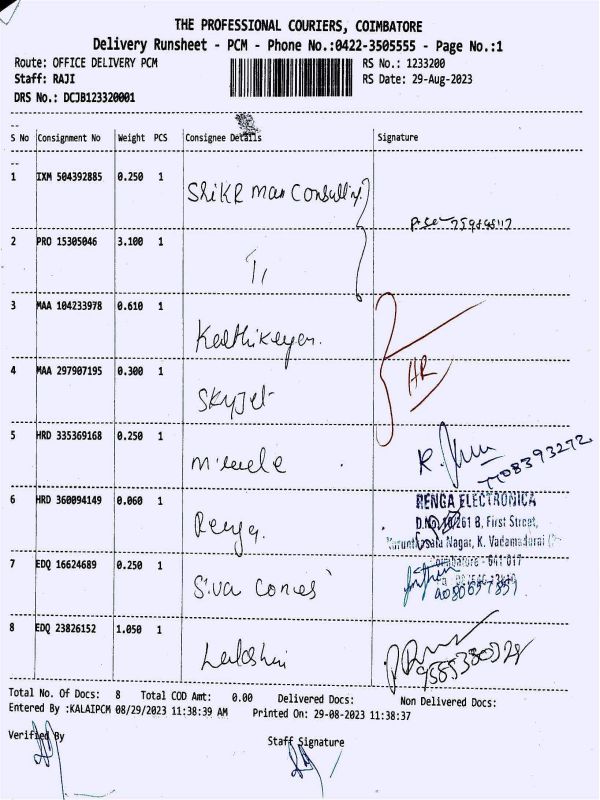 THE PROFESSIONAL COURIERS, COIMBATORE
Delivery Runsheet - PCM - Phone No.:0422-3505555 - Page No.:1
Route: OFFICE DELIVERY PCM RS No.: 1233200
Staff: RAJI RS Date: 29-Aug-2023
DRS No.: DCJB123320001
S No Consignment No Weight PCS Consignee Details Signature
1 IXM 504392885 0.250 1 ShiKR man Consulting
2 PRO 15305046 3.100 1
3 MAA 104233978 0.610 1 Kathikeyan.
4 MAA 297907195 0.300 1 Skyjet HR
5 HRD 335369168 0.250 1 R.
6 HRD 360094149 0.060 1 Renga. RENGA ELECTRONICA
D.No. 10/261 B, First Street,
Nagar, K. Vadamadurai
7 EDQ 16624689 0.250 1 Siva
Coimbatore - 641 017
8 EDQ 23826152 1.050 1
Total No. Of Docs: 8 Total COD Amt: 0.00 Delivered Docs: Non Delivered Docs:
Entered By :KALAIPCM 08/29/2023 11:38:39 AM Printed On: 29-08-2023 11:38:37
Verified By Staff Signature